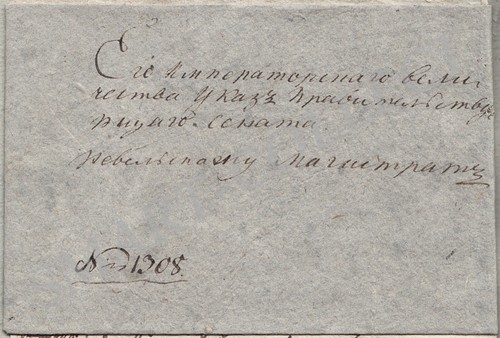 Его Императорскаго вели
чества Указъ Правительству
ющаго Сената.
Ревельскому Магистрату
№ 1308.